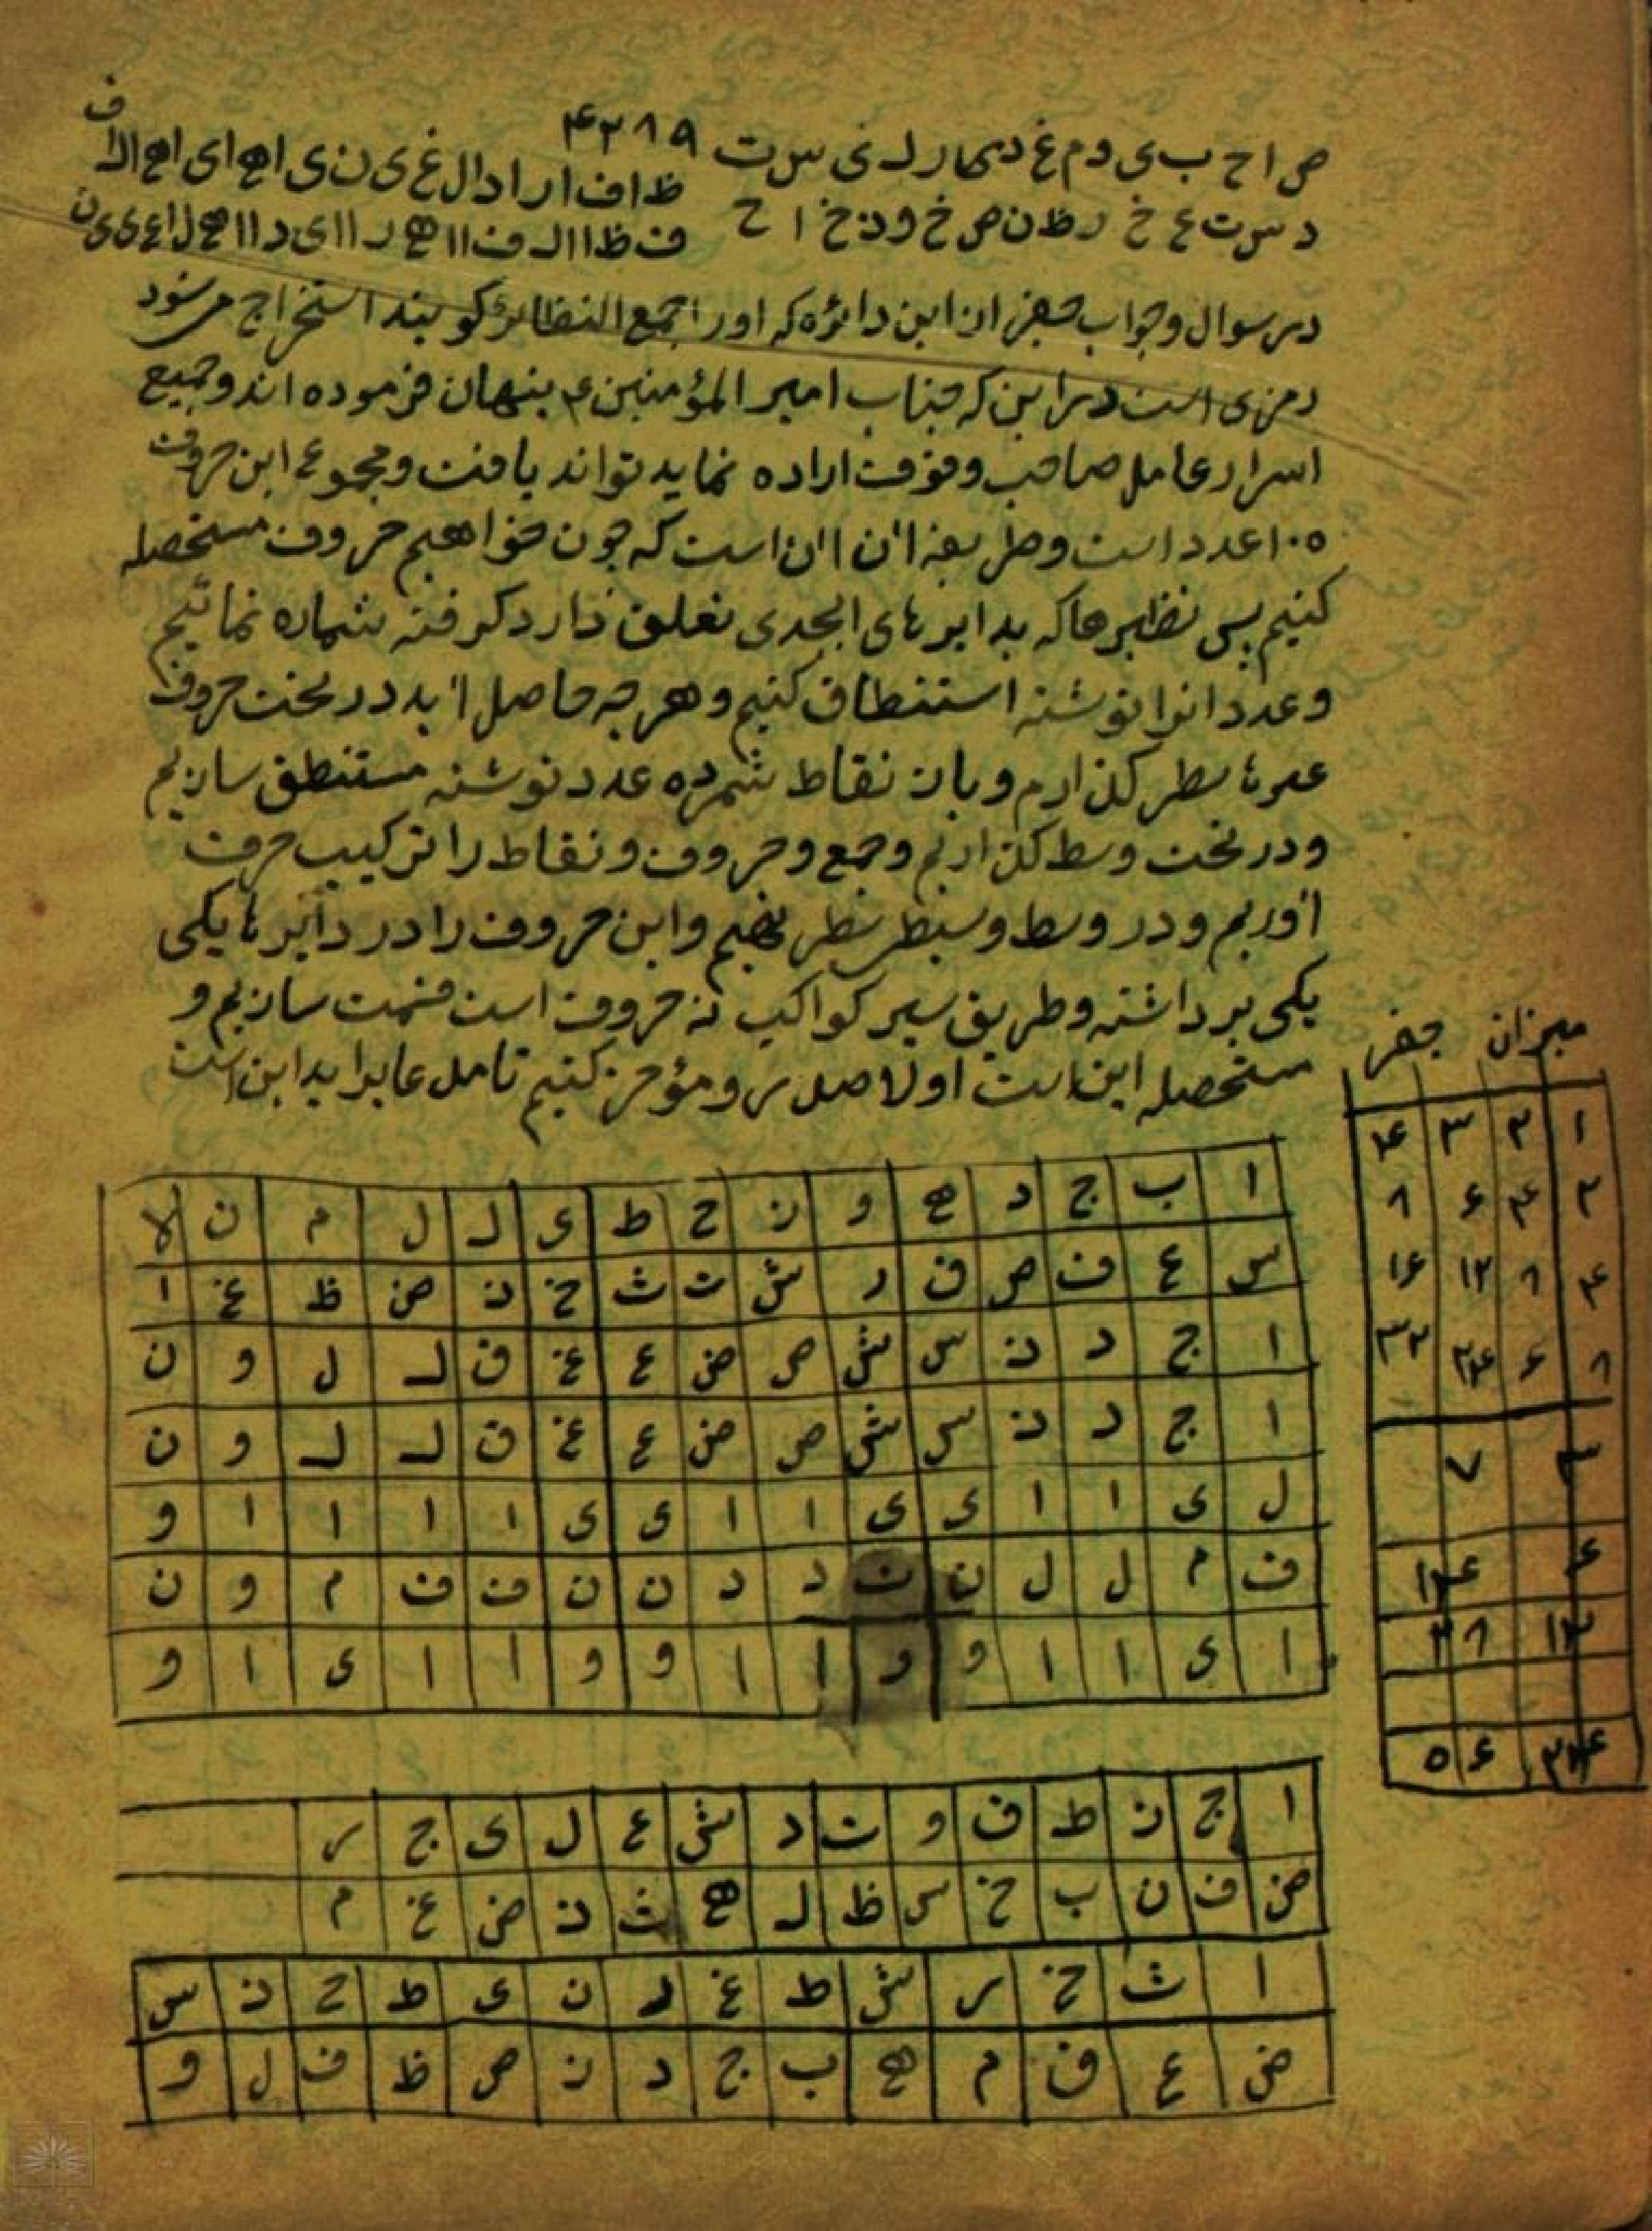 ص ا ح ب ی د م غ د ی ک ا ر ل ن ی س ت ۴۲۸۹
ظ ا ف ا ر ا د ا ل غ ی ن ی ا ه ا ی ا ه ا ل ا ف
د س ت ع خ ر ظ ن ص خ و ذ خ ا ح
ف ظ ا ا ل ف ا ا ه ر ا ا ی د ا ا ه ل ا ع ی ی ن
در سوال و جواب جفر ان این دائره که او را جمع النظائر کویند استخراج میشود
رمزی است در این که جناب امیر المؤمنین ع پنهان فرموده اند و جمیع
اسرار عامل صاحب وقوف اراده نماید تواند یافت و مجموع این حروف
۱۰۵ عدد است و طریقه آن آن است که چون خواهیم حروف مستحصله
کنیم پس نظیرها که بدایرهای ابجدی تعلق دارد گرفته شماره نمائیم
و عدد انرا نوشته استنطاق کنیم و هر چه حاصل آید در تحت حروف
سطر گذارم و باز نقاط شمرده عدد نوشته مستنطق سازیم
و در تحت وسط گذاریم و جمع و حروف و نقاط را ترکیب حرف
آوریم و در وسط و سطر نظر نهیم و این حروف را در دایرها یکی
یکی برداشته و طریق سیر کواکب نه حروف است قسمت سازیم و
مستحصله این است اولا صدر و مؤخر کنیم تامل عابرا ید این است
میزان جفر
۱ ۲ ۳ ۴
۲ ۴ ۶ ۸
۴ ۸ ۱۲ ۱۶
۸ ۶ ۲۴ ۳۲
۳ ۷
۶ ۱۴
۱۲ ۲۸
۲۴ ۵۶
ا ب ج د ه و ز ح ط ی ك ل م ن لا
س ع ف ص ق ر ش ت ث خ ذ ض ظ غ ا
ا ج د ذ س ش ص ض ع غ ق ك ل و ن
ا ج د ذ س ش ص ض ع غ ق ك ك و ن
ل ی ا ا ی ی ا ا ی ی ا ا ا ا و
ف م ل ل ن ت د د ن ن ف ف م و ن
ا ی ا ا و و ا ا و و ا ا ی ا و
ا ج ز ط ق و ت د ش ع ل ی ج ر
ض ف ن ب خ س ظ ك ه ث ذ ض غ م
ا ث خ ر ش ط غ ك ن ی ط ح ذ س
ض ع ق م ه ب ج د ز ص ظ ف ل و